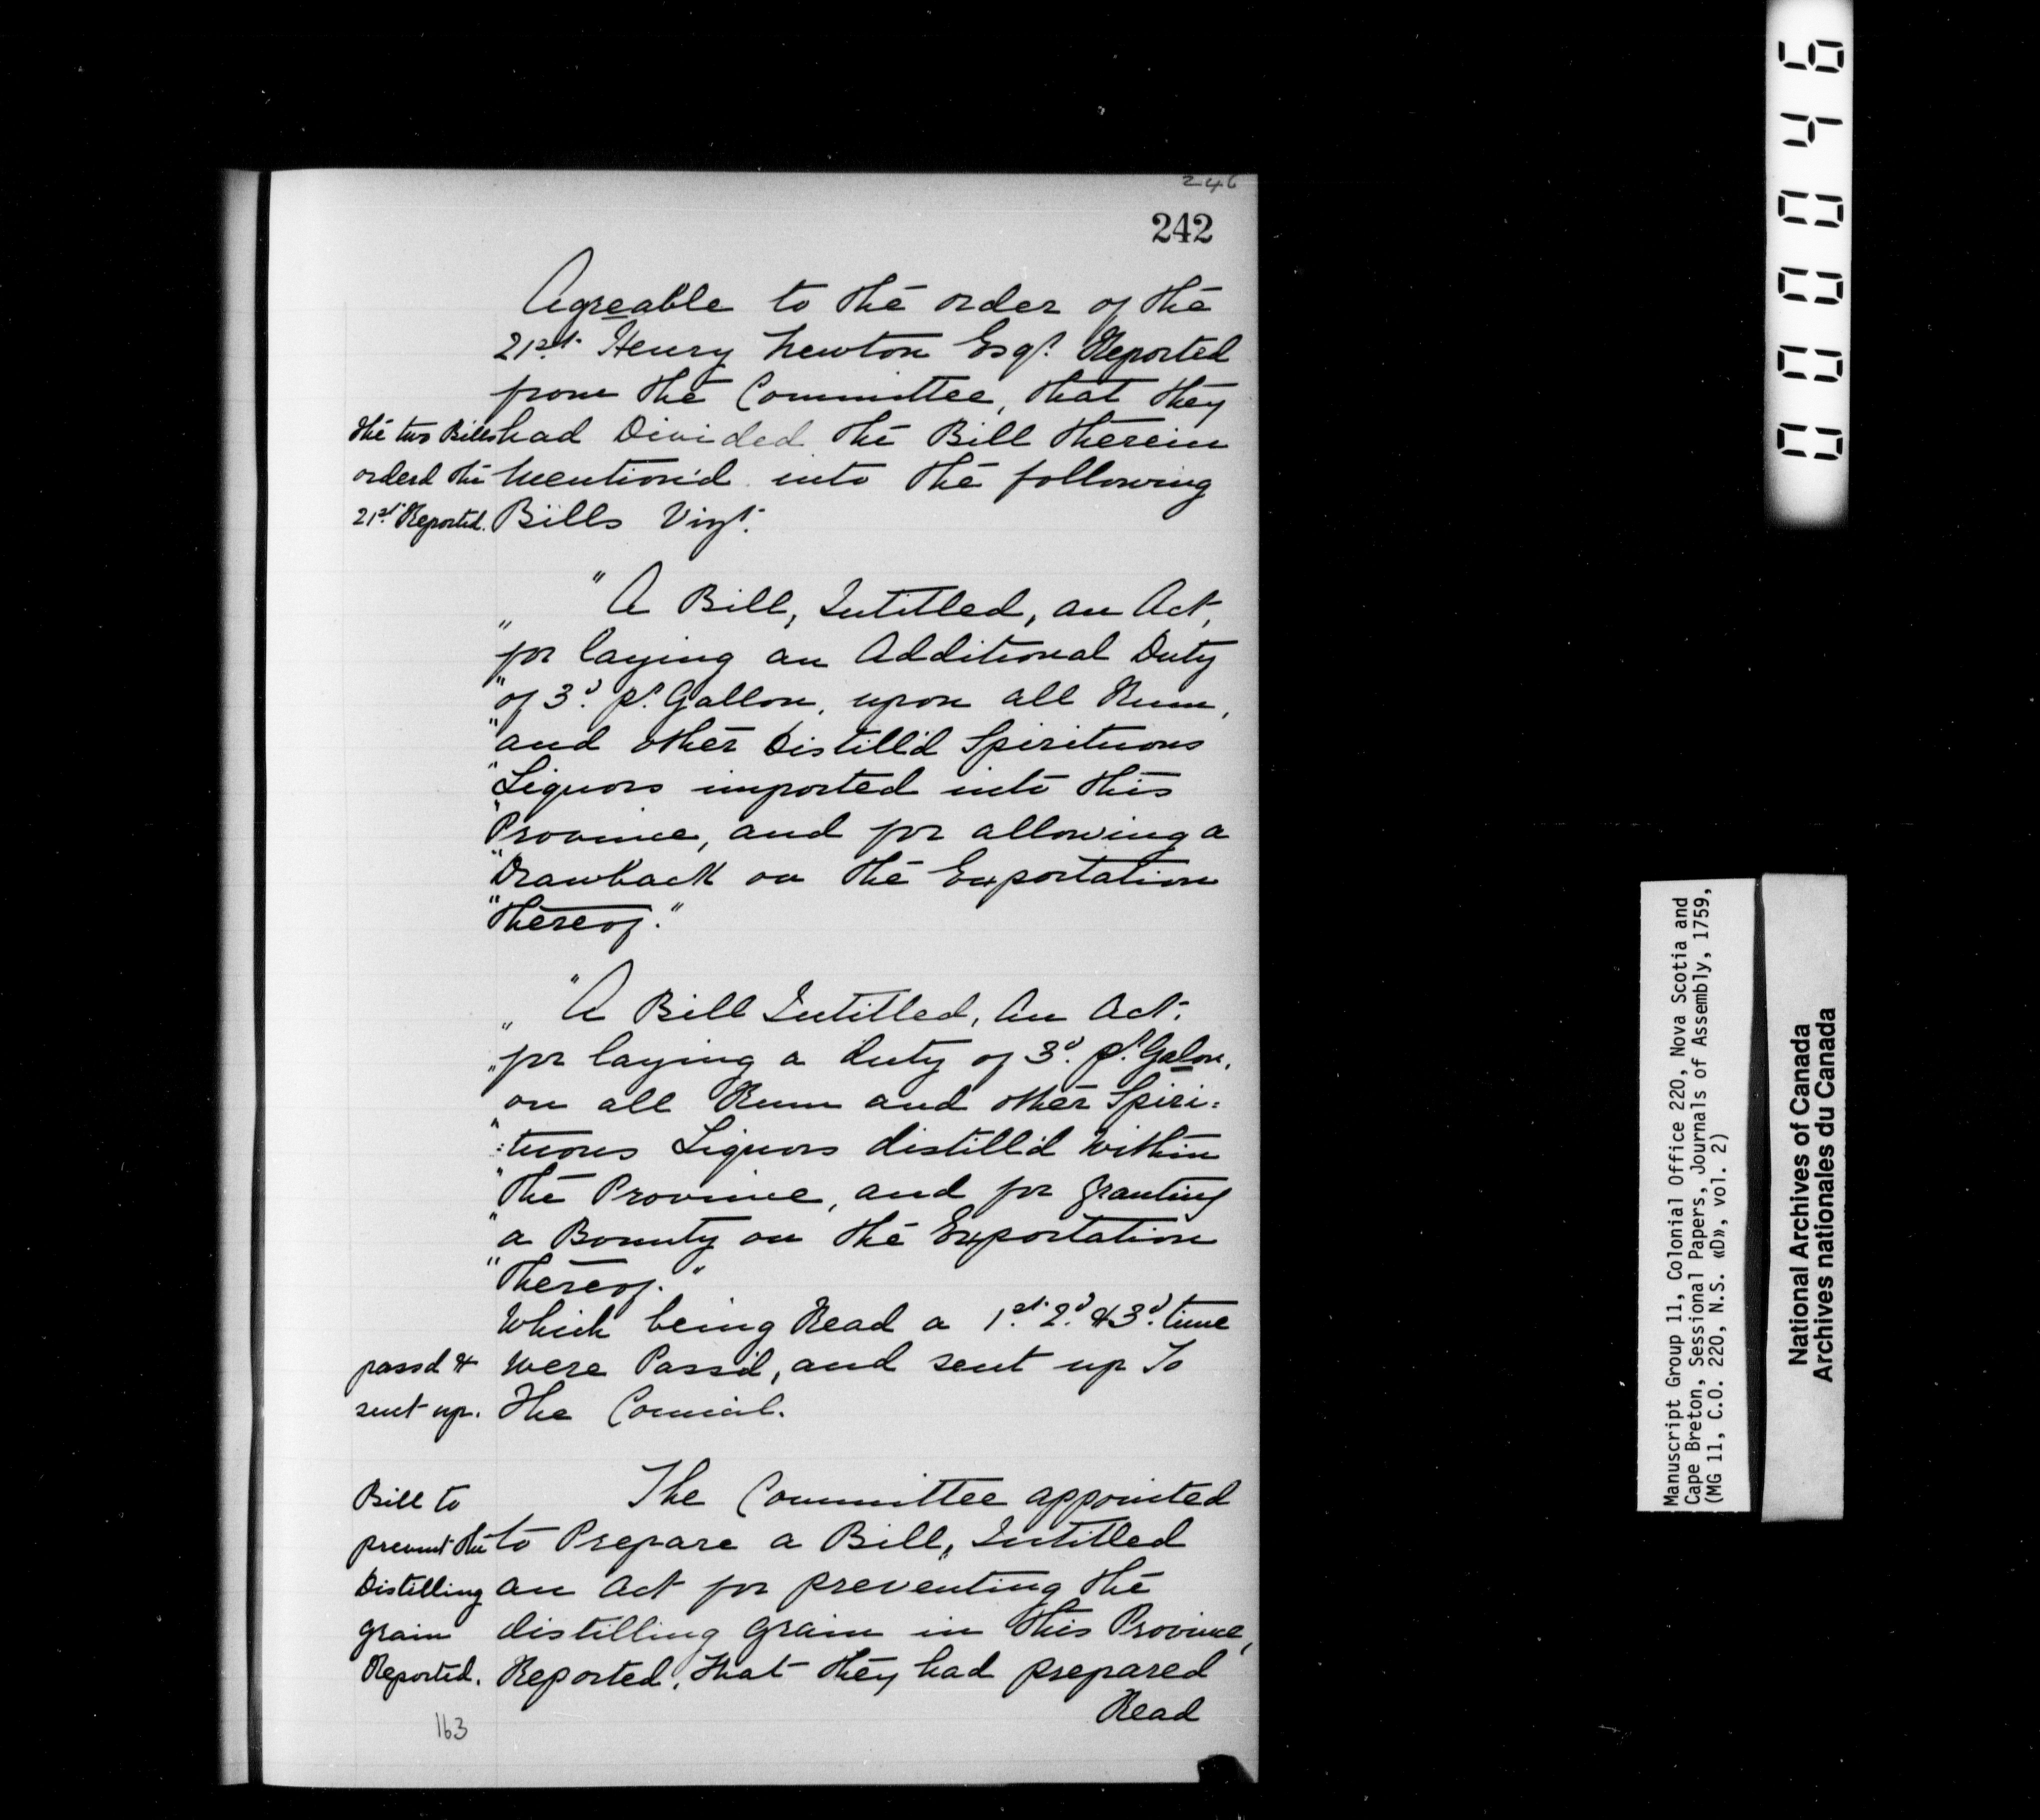 246
242
Agreable to the order of the
21st. Henry Newton Esqr. Reported
from the Committee, that they
the two Bills had Divided the Bill therein
orderd the mention'd into the following
21st. Reported. Bills Vizt.
" A Bill, Intitled, an Act,
" for laying an Additional Duty
" of 3d. pr. Gallon, upon all Rum,
" and other Distill'd Spirituous
" Liquors imported into this
" Province, and for allowing a
" Drawback on the Exportation
" thereof."
" A Bill Intitled, An Act.
" for laying a duty of 3d. pr. Galon,
" on all Rum and other Spiri:
" :tuous Liquors distill'd within
" the Province, and for granting
" a Bounty on the Exportation
" thereof."
Which being Read a 1st. 2d. & 3d. time
passd & were Pass'd, and sent up To
sent up. The Council.
Bill to The Committee appointed
prevent the to Prepare a Bill, Intitled
Distilling an Act for preventing the
grain distilling grain in this Province,
Reported. Reported, that they had prepared
Read
163
000046
Manuscript Group 11, Colonial Office 220, Nova Scotia and
Cape Breton, Sessional Papers, Journals of Assembly, 1759,
(MG 11, C.O. 220, N.S. «D», vol. 2)
National Archives of Canada
Archives nationales du Canada